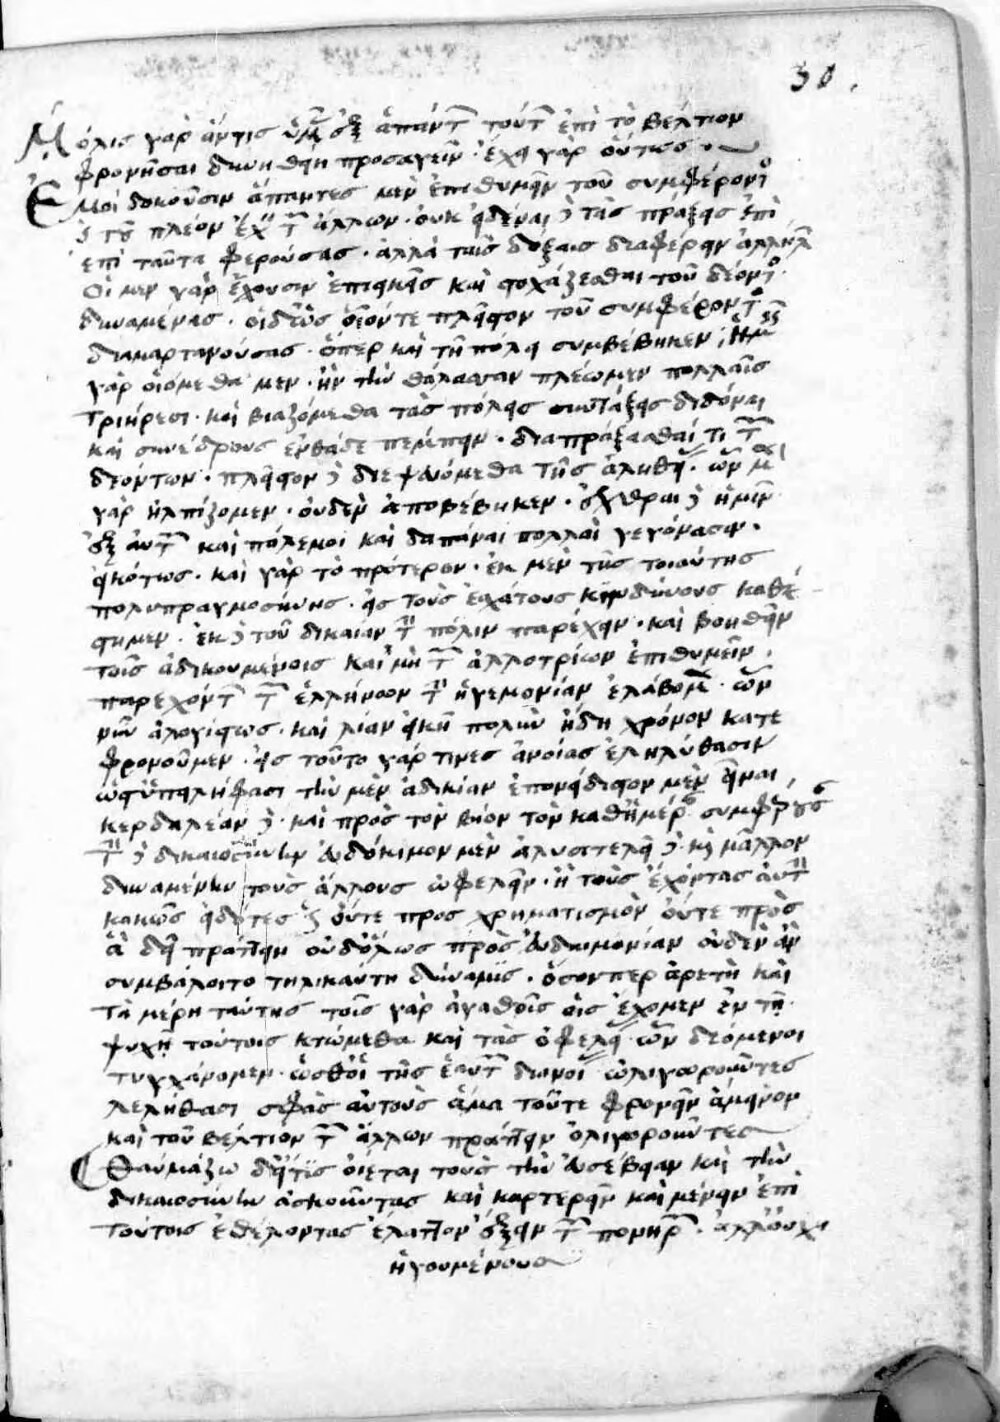 30.
Μόλις γὰρ ἄν τις ὑμᾶς ἐξ ἁπάντων τούτων ἐπὶ τὸ βέλτιον
φρονῆσαι δυνηθείη προσαγαγεῖν· ἔχει γὰρ οὕτως·
Ἐμοὶ δοκοῦσιν ἅπαντες μὲν ἐπιθυμεῖν τοῦ συμφέροντος
καὶ τοῦ πλέον ἔχειν τῶν ἄλλων· οὐκ εἰδέναι δὲ τὰς πράξεις
ἐπὶ ταῦτα φερούσας· ἀλλὰ ταῖς δόξαις διαφέρειν ἀλλήλων
Οἱ μὲν γὰρ ἔχουσιν ἐπιεικεῖς καὶ στοχάζεσθαι τοῦ δέοντος
δυναμένας· οἱ δ' ὡς οἷόν τε πλεῖστον τοῦ συμφέροντος
διαμαρτανούσας· ὅπερ καὶ τῇ πόλει συμβέβηκεν ἡμεῖς
γὰρ οἰόμεθα μὲν· ἢν τὴν θάλασσαν πλέωμεν πολλαῖς
τριήρεσι· καὶ βιαζόμεθα τὰς πόλεις συντάξεις διδόναι
καὶ συνέδρους ἐνθάδε πέμπειν· διαπράξασθαί τι τῶν
δεόντων· πλεῖστον δὲ διεψεύσμεθα τῆς ἀληθείας· ὧν μὲν
γὰρ ἠλπίζομεν· οὐδὲν ἀποβέβηκεν· ἔχθραι δὲ ἡμῖν
ἐξ αὐτῶν καὶ πόλεμοι καὶ δαπάναι πολλαὶ γεγόνασιν·
εἰκότως· καὶ γὰρ τὸ πρότερον· ἐκ μὲν τῆς τοιαύτης
πολυπραγμοσύνης· εἰς τοὺς ἐσχάτους κινδύνους καθέ
στημεν· ἐκ δὲ τοῦ δικαίαν τὴν πόλιν παρέχειν· καὶ βοηθεῖν
τοῖς ἀδικουμένοις καὶ μὴ τῶν ἀλλοτρίων ἐπιθυμεῖν·
παρ' ἑκόντων τῶν ἑλλήνων τὴν ἡγεμονίαν ἐλάβομεν· ὧν
νῦν ἀλογίστως· καὶ λίαν εἰκῇ πολὺν ἤδη χρόνον κατα
φρονοῦμεν· εἰς τοῦτο γάρ τινες ἀνοίας ἐληλύθασιν
ὥσθ' ὑπειλήφασι τὴν μὲν ἀδικίαν ἐπονείδιστον μὲν εἶναι,
κερδαλέαν δὲ· καὶ πρὸς τὸν βίον τὸν καθ' ἡμέραν συμφέρουσαν
τὴν δὲ δικαιοσύνην εὐδόκιμον μὲν ἀλυσιτελῆ δὲ· καὶ μᾶλλον
δυναμένην τοὺς ἄλλους ὠφελεῖν· ἢ τοὺς ἔχοντας αὐτὴν
κακῶς εἰδότες ὡς οὔτε πρὸς χρηματισμὸν οὔτε πρὸς
ἃ δεῖ πράττειν οὐδ' ὅλως πρὸς εὐδαιμονίαν οὐδὲν ἂν
συμβάλοιτο τηλικαύτη δύναμις· ὅσον περ ἀρετὴ καὶ
τὰ μέρη ταύτης τοῖς γὰρ ἀγαθοῖς οἷς ἔχομεν ἐν τῇ
ψυχῇ τούτοις κτώμεθα καὶ τὰς ὠφελείας ὧν δεόμενοι
τυγχάνομεν· ὥσθ' οἱ τῆς ἑαυτῶν διανοίας ὀλιγωροῦντες
λελήθασι σφᾶς αὐτοὺς ἅμα τοῦ τε φρονεῖν ἄμεινον
καὶ τοῦ βέλτιον τῶν ἄλλων πράττειν ὀλιγωροῦντες
Θαυμάζω δ' εἴ τις οἴεται τοὺς τὴν εὐσέβειαν καὶ τὴν
δικαιοσύνην ἀσκοῦντας καὶ καρτερεῖν καὶ μένειν ἐπὶ
τούτοις ἐθέλοντας ἔλαττον ἕξειν τῶν πονηρῶν· ἀλλ' οὐχ
ἡγουμένους